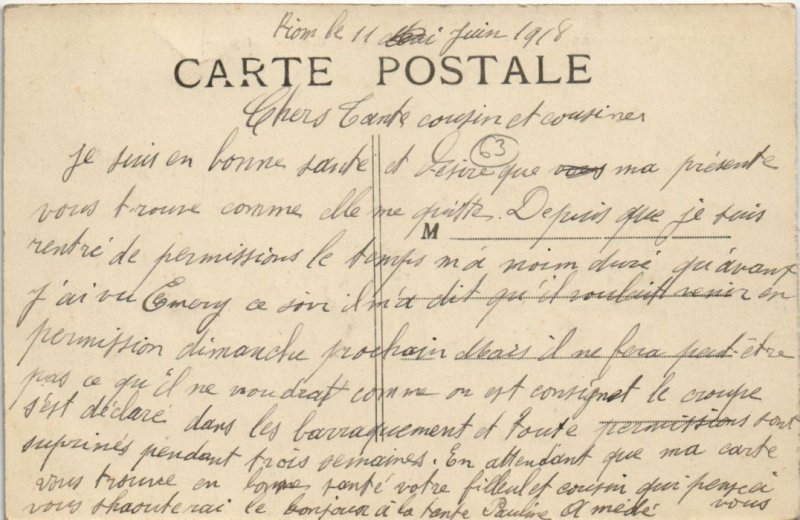 Riom le 11 Mai Juin 1918
CARTE POSTALE
Chers Tante cousin et cousines
63
je suis en bonne santé et Desire que vous ma présente
vous trouve comme elle me quitte. Depuis que je suis
M
rentré de permissions le temps m'a noim duré qu'avant
j'ai vu Emery ce soir il m'a dit qu'il voulait venir en
permission dimanche prochain Mais il ne fera peut-être
pas ce qu'il ne voudrat comme on est consignet le croupe
s'est déclaré dans les barraquement et toute permissions sont
suprimés pendant trois semaines. En attendant que ma carte
vous trouve en bonne santé votre filleul et cousin qui pense à
vous shaouterai le bonjour à la tante Pauline Amédé vous